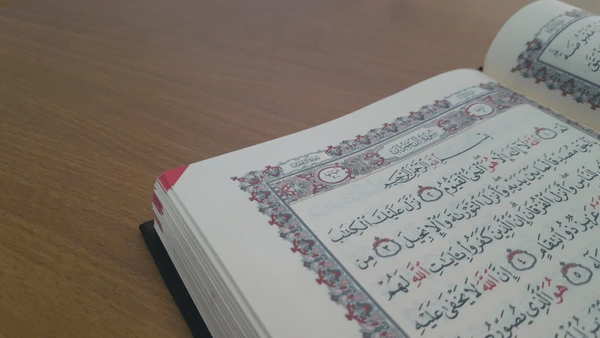 سُورَةُ آلِ عِمْرَانَ
بِسْمِ ٱللَّهِ ٱلرَّحْمَٰنِ ٱلرَّحِيمِ
ٱللَّهُ لَآ إِلَٰهَ إِلَّا هُوَ ٱلْحَىُّ ٱلْقَيُّومُ ٢ نَزَّلَ عَلَيْكَ ٱلْكِتَٰبَ
مُصَدِّقًا لِّمَا بَيْنَ يَدَيْهِ وَأَنزَلَ ٱلتَّوْرَىٰةَ وَٱلْإِنجِيلَ ٣ مِن
لِّلنَّاسِ وَأَنزَلَ ٱلْفُرْقَانَ إِنَّ ٱلَّذِينَ كَفَرُوا۟ بِـَٔايَٰتِ ٱللَّهِ لَهُمْ
عَزِيزٌ ذُو ٱنتِقَامٍ ٤ إِنَّ ٱللَّهَ لَا يَخْفَىٰ عَلَيْهِ
٥ هُوَ ٱلَّذِى يُصَوِّرُ